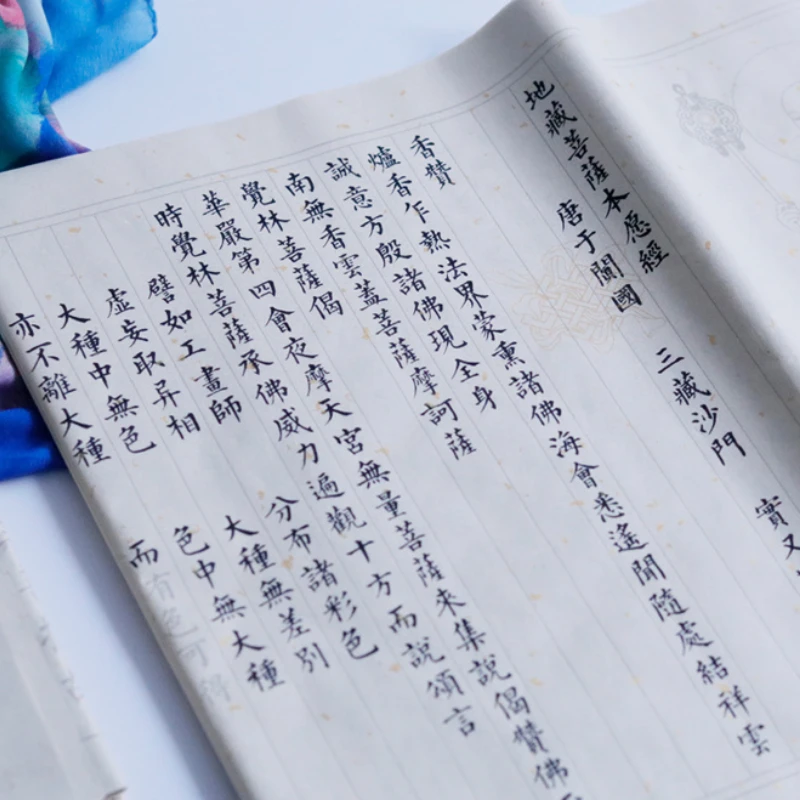 地藏菩薩本愿經
唐于闐國 三藏沙門 實叉
香贊
爐香乍熱法界蒙熏諸佛海會悉遙聞隨處結祥雲
誠意方殷諸佛現全身
南無香雲蓋菩薩摩訶薩
覺林菩薩偈
華嚴第四會夜摩天宮無量菩薩來集說偈贊佛
時覺林菩薩承佛威力遍觀十方而說頌言
譬如工畫師 分布諸彩色
虛妄取异相 大種無差別
大種中無色 色中無大種
亦不離大種 而有色可得